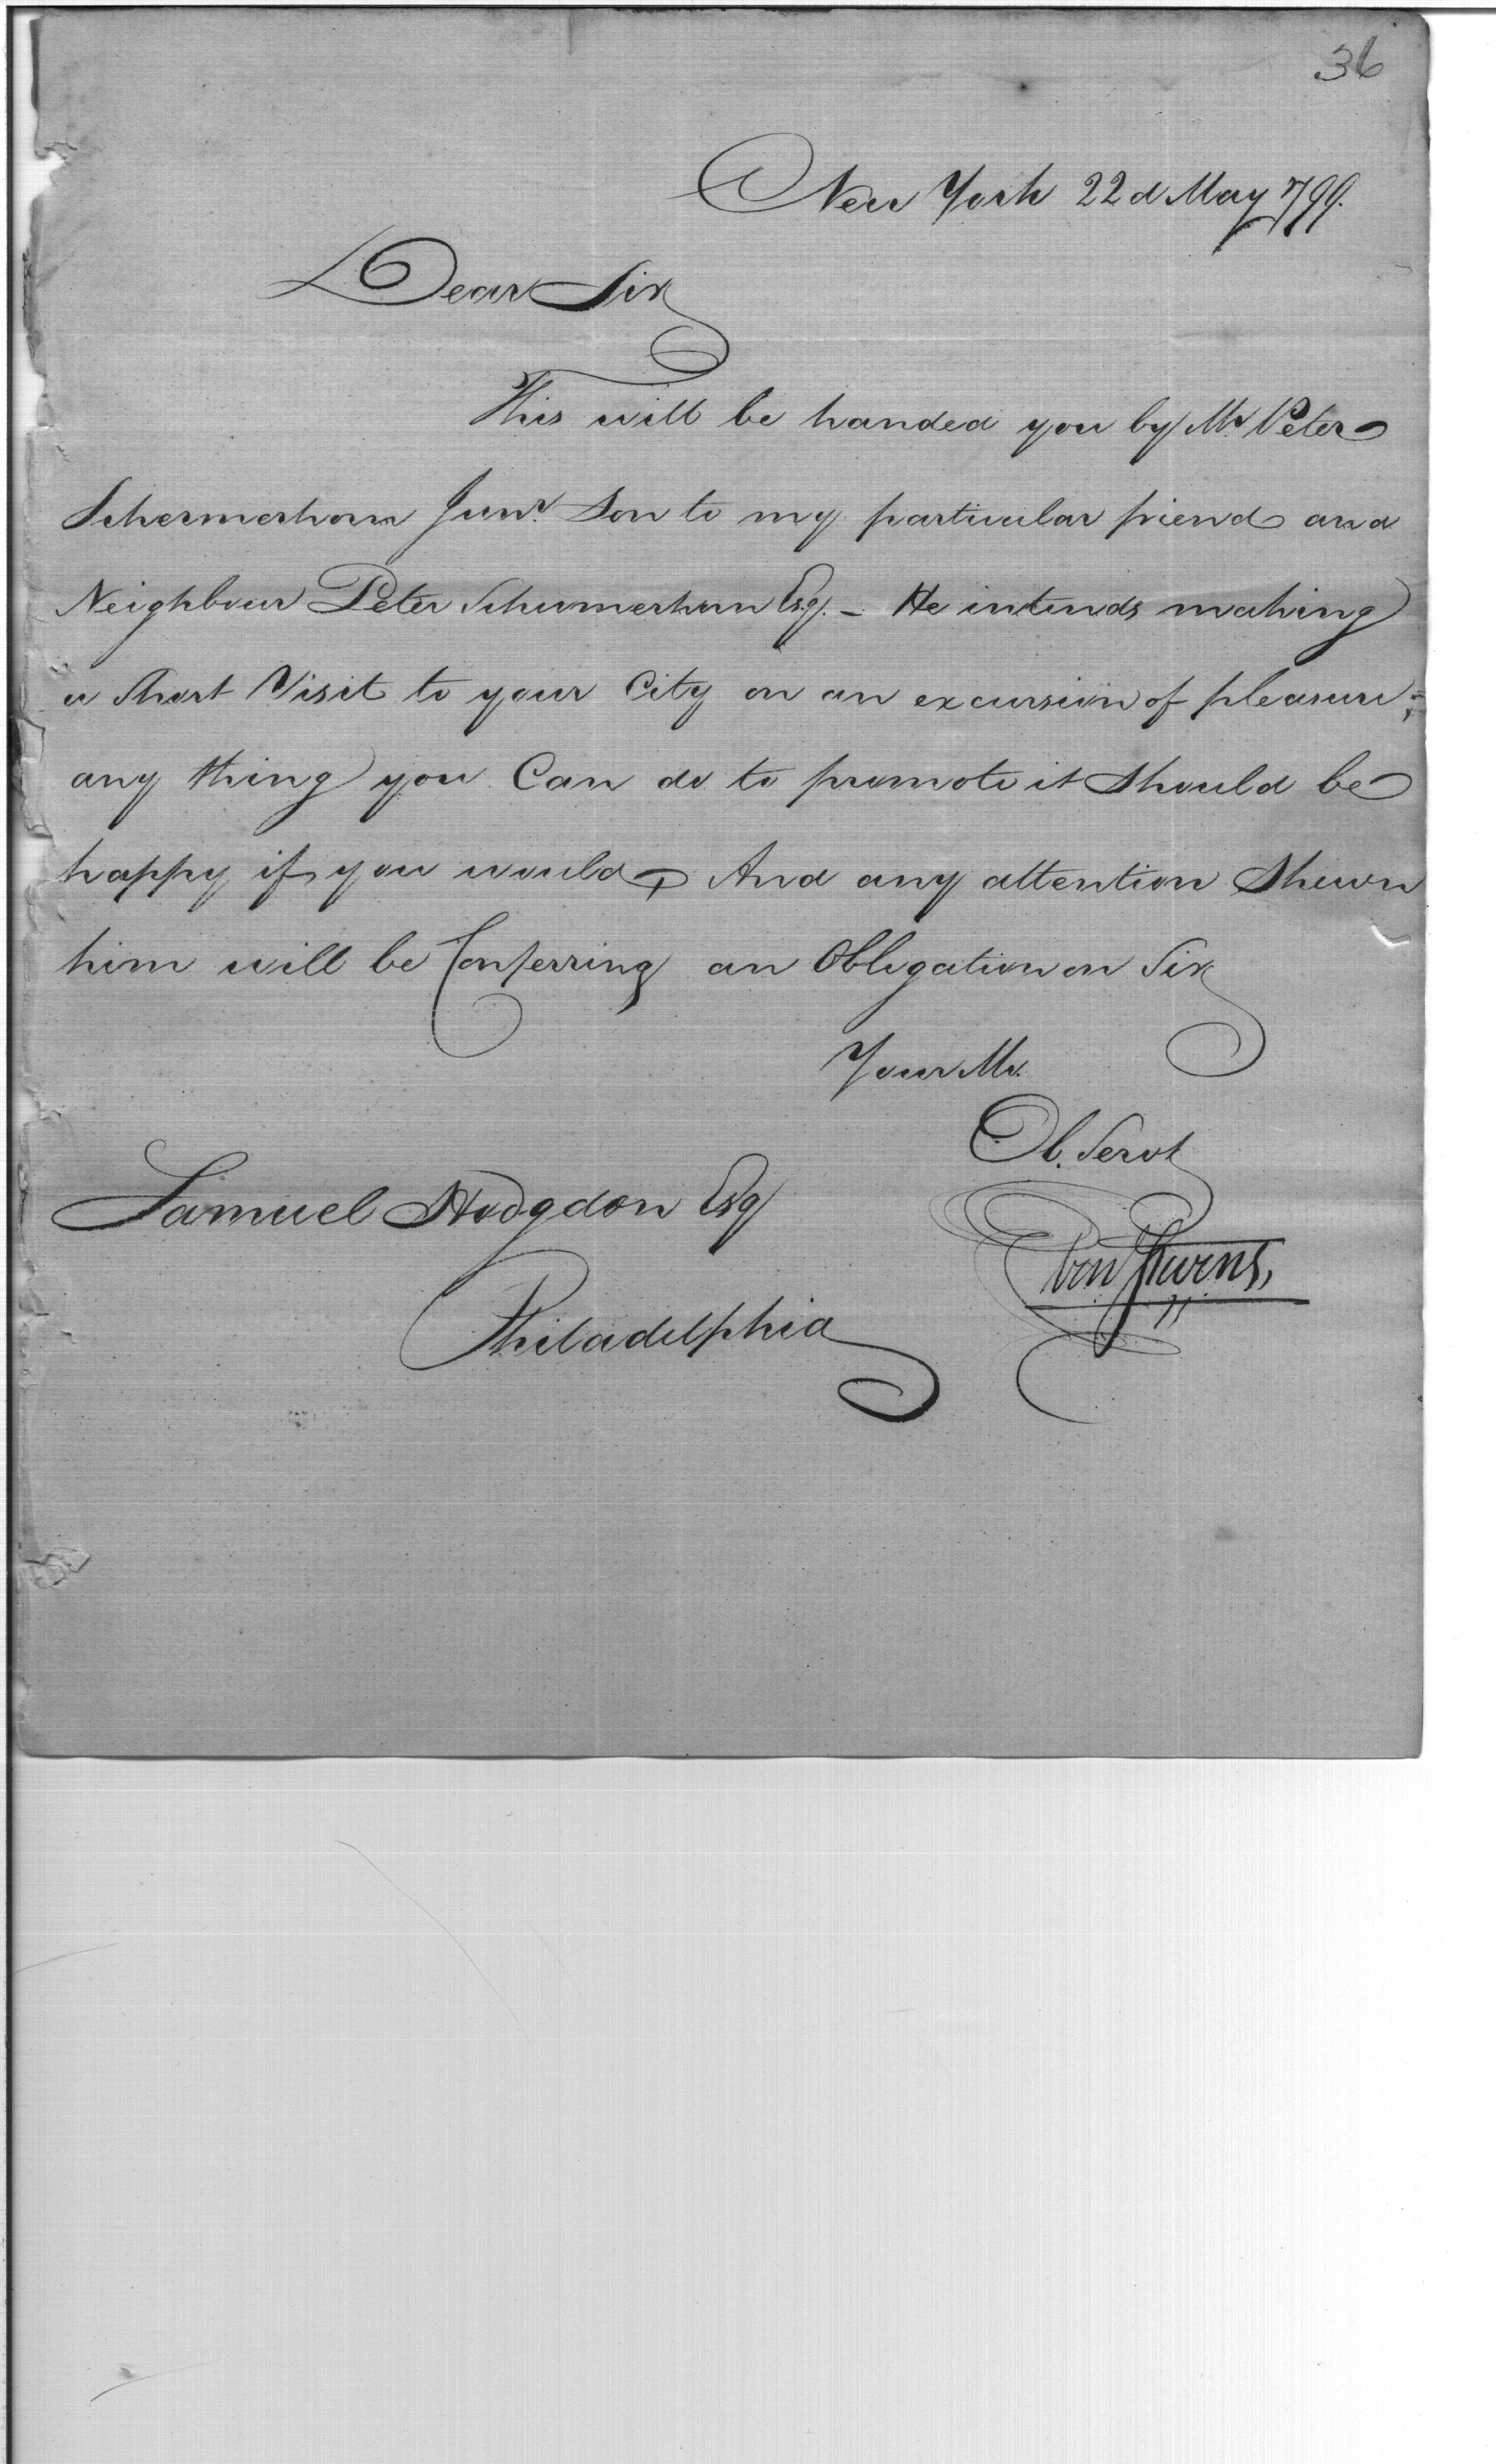 36
New York 22d May 1799.
Dear Sir
This will be handed you by Mr Peter
Schermerhorn Junr. Son to my particular friend and
Neighbour Peter Schermerhorn Esq. - He intends making
a Short Visit to your City on an excursion of pleasure;
any thing you Can do to promote it Should be
happy if you would, And any attention Shewn
him will be Conferring an Obligation on Sir
Your Mo.
Ob. Servt
Samuel Hodgdon Esq
Eben Stevens,
Philadelphia